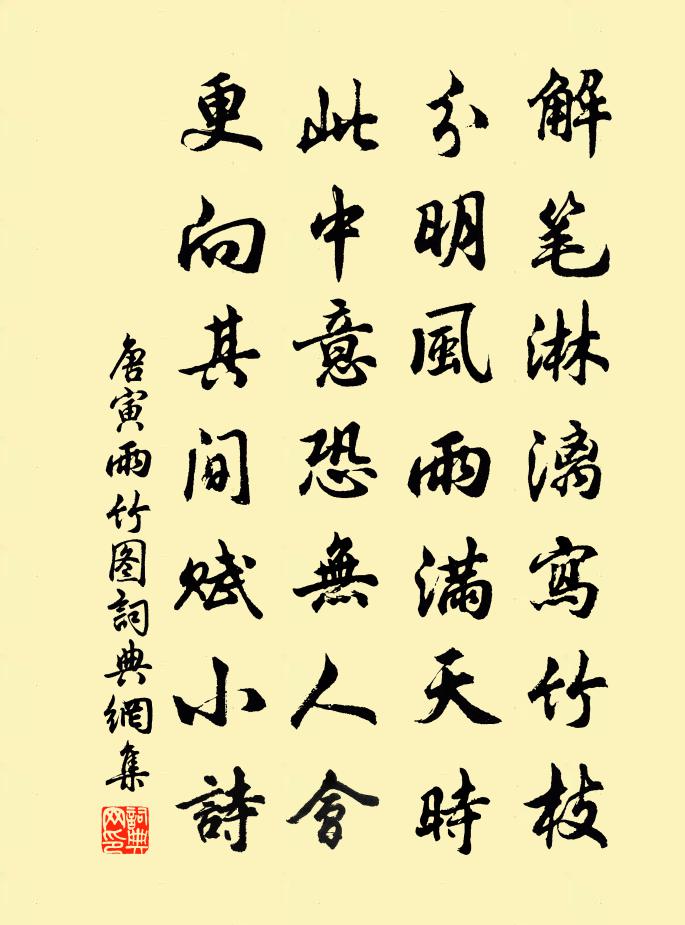 解笔淋漓寫竹枝
分明風雨滿天時
此中意恐無人會
更向其间赋小詩
唐寅雨竹图詞典網集
詞典网印